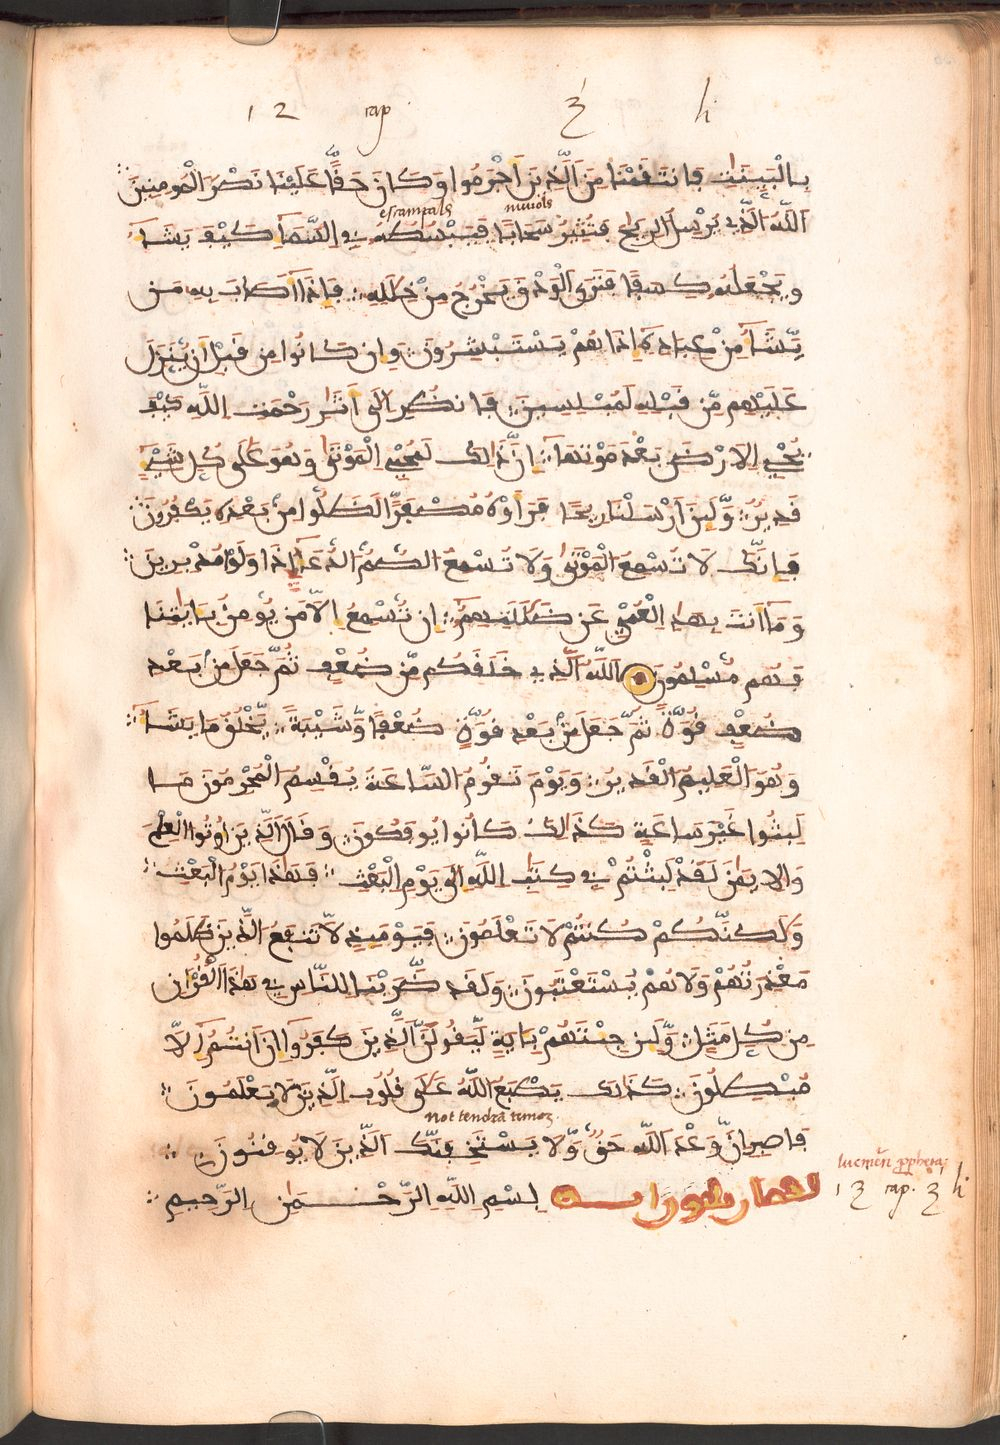 12 cap 3 li
بِالْبَيِّنَٰتِ فَانتَقَمْنَا مِنَ الَّذِينَ أَجْرَمُوا وَكَانَ حَقًّا عَلَيْنَا نَصْرُ الْمُومِنِينَ
escampals nuvols
اللَّهُ الَّذِي يُرْسِلُ الرِّيَٰحَ فَتُثِيرُ سَحَابًا فَيَبْسُطُهُ فِي السَّمَاءِ كَيْفَ يَشَاءُ
وَيَجْعَلُهُ كِسَفًا فَتَرَى الْوَدْقَ يَخْرُجُ مِنْ خِلَٰلِهِ فَإِذَا أَصَابَ بِهِ مَن
يَّشَاءُ مِنْ عِبَادِهِ إِذَا هُمْ يَسْتَبْشِرُونَ وَإِن كَانُوا مِن قَبْلِ أَن يُّنَزَّلَ
عَلَيْهِم مِّن قَبْلِهِ لَمُبْلِسِينَ فَانظُرِ الَى أَثَرِ رَحْمَتِ اللَّهِ كَيْفَ
يُحْيِ الَارْضَ بَعْدَ مَوْتِهَا إِنَّ ذَٰلِكَ لَمُحْيِ الْمَوْتَىٰ وَهُوَ عَلَىٰ كُلِّ شَيْءٍ
قَدِيرٌ وَلَئِنَ ارْسَلْنَا رِيحًا فَرَأَوْهُ مُصْفَرًّا لَّظَلُّوا مِن بَعْدِهِ يَكْفُرُونَ
فَإِنَّكَ لَا تُسْمِعُ الْمَوْتَىٰ وَلَا تُسْمِعُ الصُّمَّ الدُّعَاءَ اذَا وَلَّوْا مُدْبِرِينَ
وَمَا أَنتَ بِهَٰدِ الْعُمْيِ عَن ضَلَٰلَتِهِمْ إِن تُسْمِعُ إِلَّا مَن يُومِنُ بِـَٔايَٰتِنَا
فَهُم مُّسْلِمُونَ اللَّهُ الَّذِي خَلَقَكُم مِّن ضُعْفٍ ثُمَّ جَعَلَ مِن بَعْدِ
ضُعْفٍ قُوَّةً ثُمَّ جَعَلَ مِن بَعْدِ قُوَّةٍ ضُعْفًا وَّشَيْبَةً يَخْلُقُ مَا يَشَاءُ
وَهُوَ الْعَلِيمُ الْقَدِيرُ وَيَوْمَ تَقُومُ السَّاعَةُ يُقْسِمُ الْمُجْرِمُونَ مَا
لَبِثُوا غَيْرَ سَاعَةٍ كَذَٰلِكَ كَانُوا يُوفَكُونَ وَقَالَ الَّذِينَ أُوتُوا الْعِلْمَ
وَالِايمَٰنَ لَقَدْ لَبِثْتُمْ فِي كِتَٰبِ اللَّهِ إِلَىٰ يَوْمِ الْبَعْثِ فَهَٰذَا يَوْمُ الْبَعْثِ
وَلَٰكِنَّكُمْ كُنتُمْ لَا تَعْلَمُونَ فَيَوْمَئِذٍ لَّا تَنفَعُ الَّذِينَ ظَلَمُوا
مَعْذِرَتُهُمْ وَلَا هُمْ يُسْتَعْتَبُونَ وَلَقَد ضَّرَبْنَا لِلنَّاسِ فِي هَٰذَا الْقُرْءَانِ
مِن كُلِّ مَثَلٍ وَلَئِن جِئْتَهُم بِـَٔايَةٍ لَّيَقُولَنَّ الَّذِينَ كَفَرُوا إِنَ انتُمُ إِلَّا
مُبْطِلُونَ كَذَٰلِكَ يَطْبَعُ اللَّهُ عَلَىٰ قُلُوبِ الَّذِينَ لَا يَعْلَمُونَ
not tendra temor
فَاصْبِرِ انَّ وَعْدَ اللَّهِ حَقٌّ وَّلَا يَسْتَخِفَّنَّكَ الَّذِينَ لَا يُوقِنُونَ
بِسْمِ اللَّهِ الرَّحْمَٰنِ الرَّحِيمِ
13 cap. 3 li